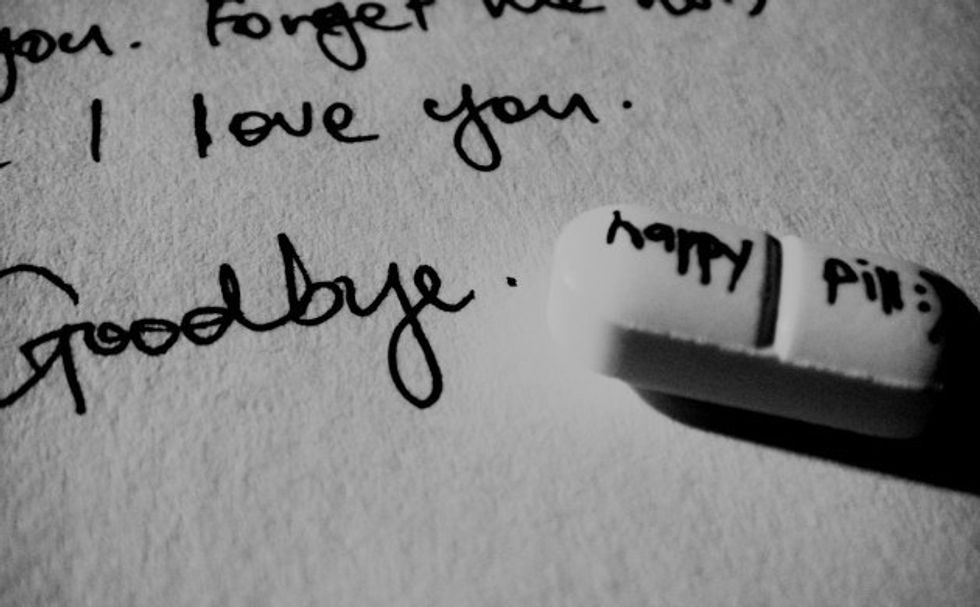 you. Forget me not,
I love you.
Goodbye.
happy pill:)